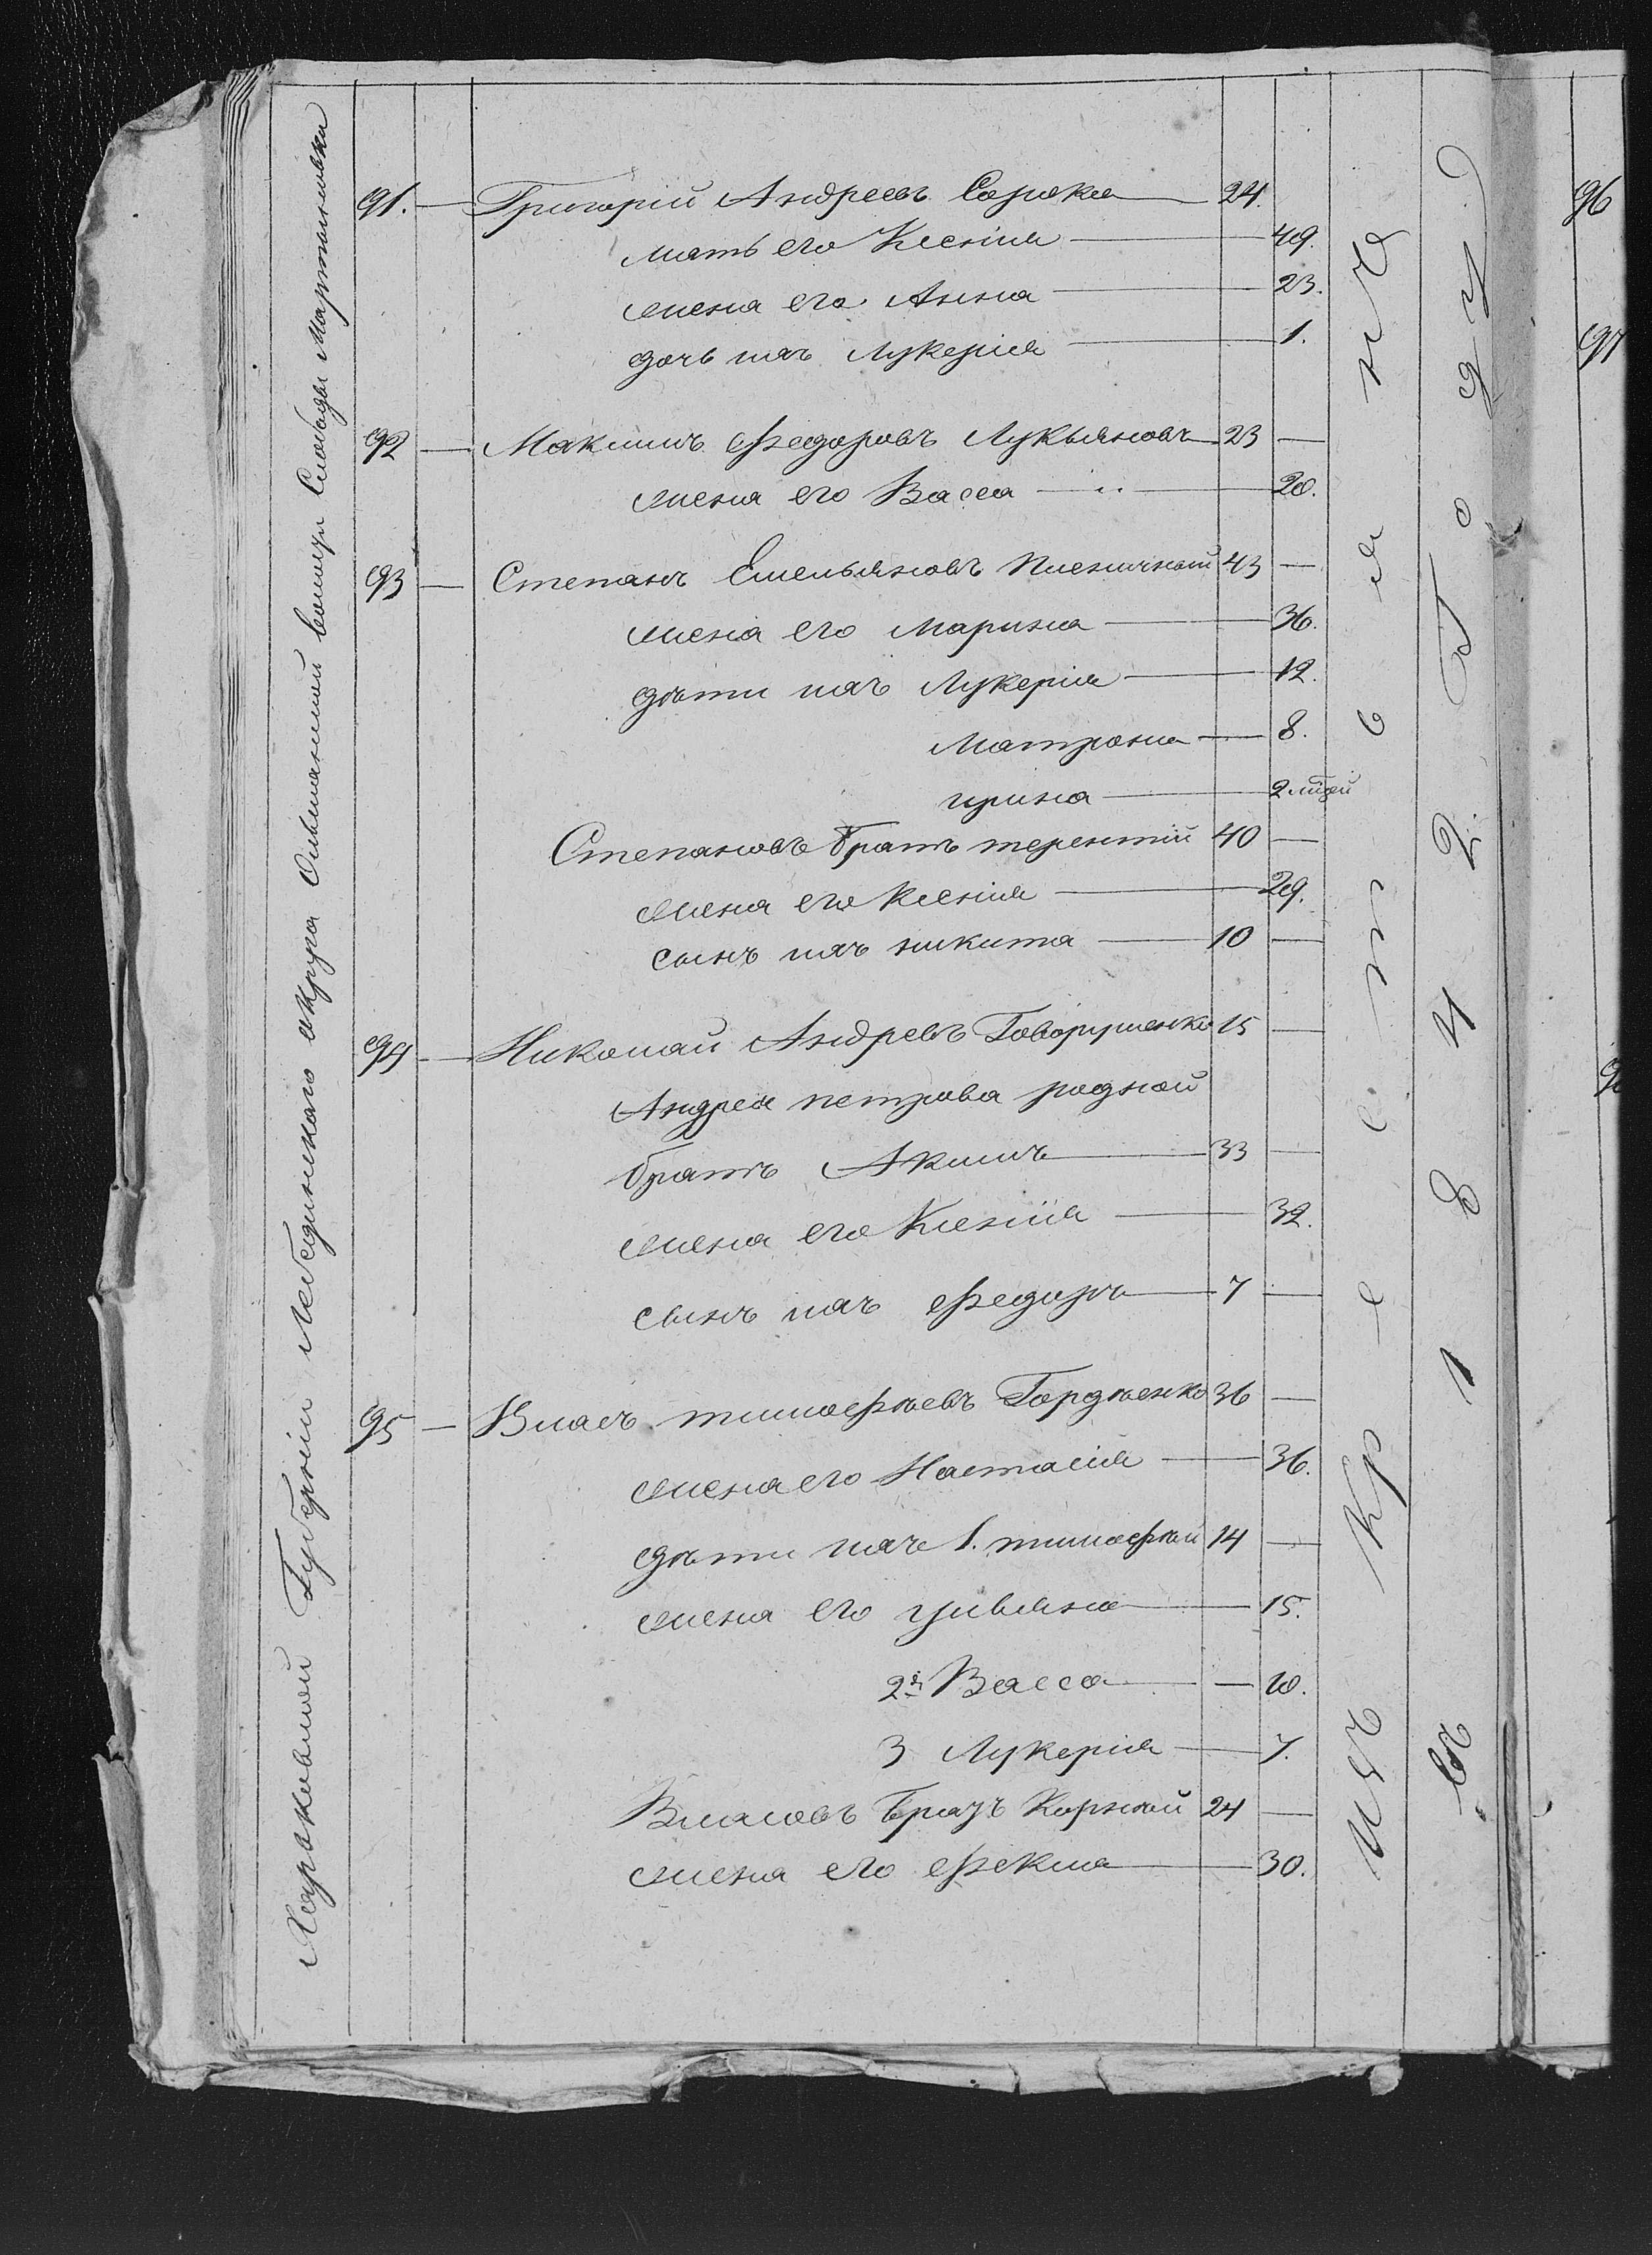 Харьковской Губерніи Лебединскаго округа Ольшанской волости Слободы Мартыновки
91. Григорій Андреевъ Сорока 24.
мать его Ксенія 49.
жена его Анна 23.
дочь ихъ Лукерія 1.
92 Максимъ Федоровъ Лукьяновъ 23
жена его Васса 20.
93 Степанъ Емельяновъ Пшеничной 43
жена его Марина 36.
дѣти ихъ Лукерія 12.
Матрона 8.
ирина 2
Степановъ братъ терентій 40
жена его Ксенія 29.
сынъ ихъ никита 10
94 Николай Андреевъ Говорушенко 15
Андрея петрова родной
братъ Акимъ 33
жена его Ксенія 32.
сынъ ихъ Федоръ 7
95 Власъ тимофѣевъ Гордѣенко 36
жена его Настасія 36.
дѣти ихъ 1. тимофѣй 14
жена его уливяна 15.
2я Васса 10.
3 Лукерія 7.
Власовъ братъ Корнѣй 24
жена его Фекла 30.
Изъ Крестьянъ
въ 1842 Году
96
97